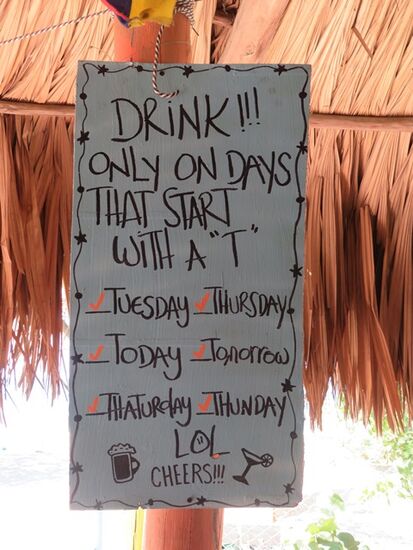 DRINK!!!
ONLY ON DAYS
THAT START
WITH A "T"
TUESDAY THURSDAY
TODAY Tomorrow
THATURday THUNDAY
LOL
CHEERS!!!